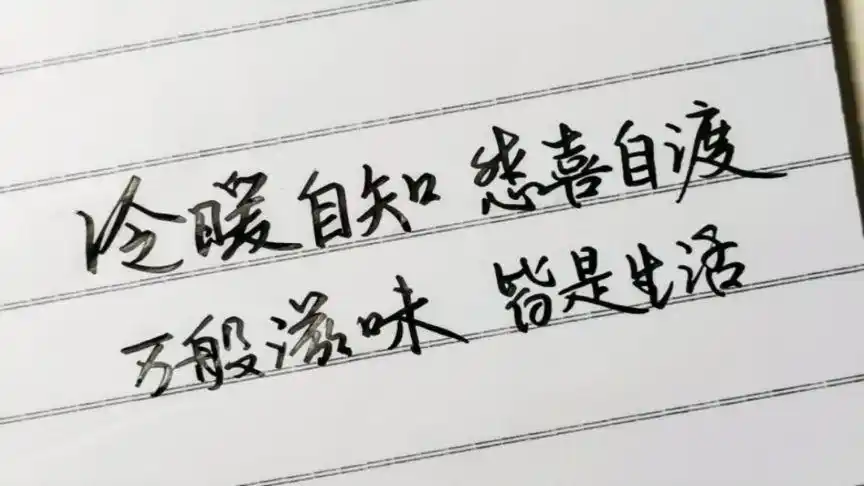 冷暖自知 悲喜自渡
万般滋味 皆是生活